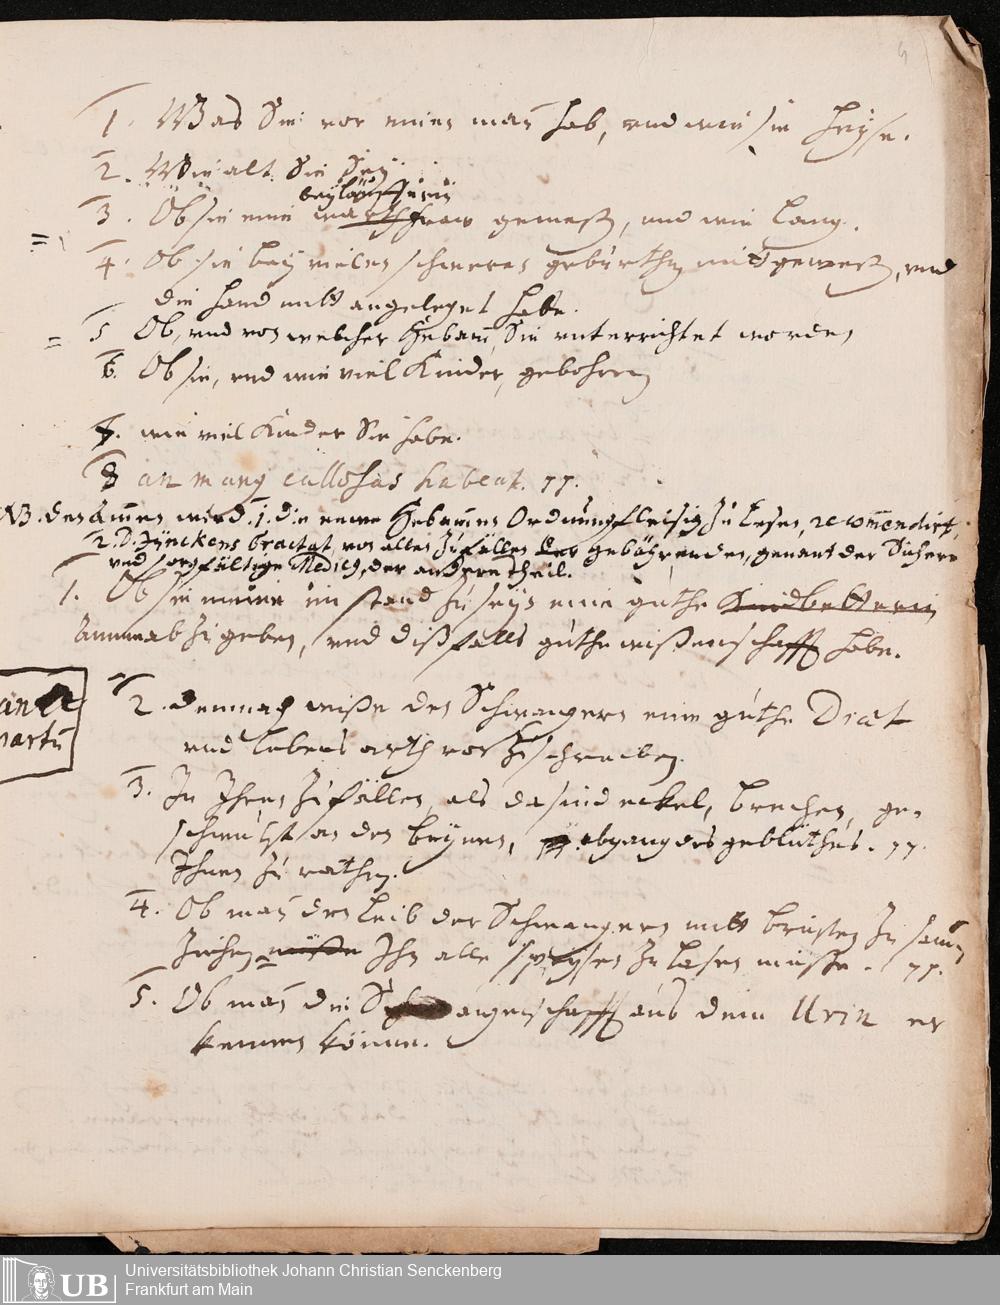 1. Was Sie vor einen man hab, und wie sie heyse.
2. Wie alt Sie Sey
beyläufferin
3. Ob sie eine warthfraw geweßt, und wie lang.
4. Ob sie bey vielen schweren geburthen mit geweßt, und
die hand mitt angeleget habe.
5 Ob, und von welcher Hebam, Sie unterrichtet worden
6. Ob sie, und wie viel Kinder, gebohren
7. wie viel Kinder Sie habe.
8 an manus callosas habeat.
NB. den Amen wird. 1. die newe Hebammen Ordnung fleisig zu lesen, recommendirt,
2. D. Jünckens tractat, von allen Zufällen der gebährenden, genant der Sichere
und sorgfältige Medicus, der andere theil.
1. Ob sie meine im stand zu seyn eine guthe Kindbetterin
Amme ab zu geben, und dißfalls guthe wißenschafft habe.
ante
partu
2. demnach wiße den Schwangern eine guthe Diæt
und lebens arth vor zu schreiben.
3. In Ihren Zufällen, als da sind eckel, brechen, ge-
schwulst an den beynen, abgang des geblüthes.
Ihnen zu rathen.
4. Ob man den leib der Schwangern mitt brüsten zu sam
ziehen müste Ihn alle speysen zu lasen müsse.
5. Ob man die Schwangerschafft aus dem Urin er
kennen könne.
UB
Universitätsbibliothek Johann Christian Senckenberg
Frankfurt am Main